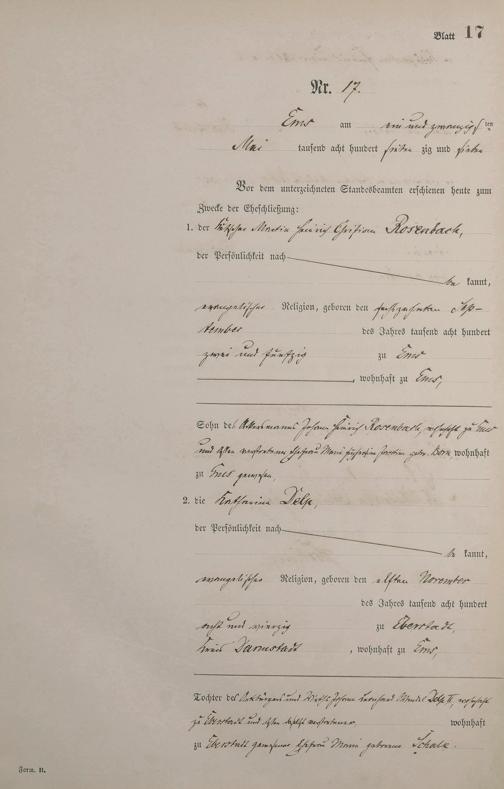 Blatt 17
Nr. 17.
Ems am ein und zwanzigsten
Mai tausend acht hundert sieben zig und sieben
Vor dem unterzeichneten Standesbeamten erschienen heute zum
Zwecke der Eheschließung:
1. der Kutscher Martin Heinrich Christian Rosenbach,
der Persönlichkeit nach
be kannt,
evangelischer Religion, geboren den sechszehnten Sep-
tember des Jahres tausend acht hundert
zwei und fünfzig zu Ems
, wohnhaft zu Ems,
Sohn des Ackersmanns Johann Heinrich Rosenbach, wohnhaft zu Ems
und dessen verstorbenen Ehefrau geb. Born, wohnhaft
zu Ems gewesen,
2. die Katharina Delp,
der Persönlichkeit nach
be kannt,
evangelischer Religion, geboren den elften November
des Jahres tausend acht hundert
acht und vierzig zu Eberstadt,
Kreis Darmstadt, wohnhaft zu Ems,
Tochter des Ortsbürgers und Johann Delp II, wohnhaft
zu Eberstadt und dessen verstorbener wohnhaft
zu Eberstadt gewesener Ehefrau Maria geborene Schalk.
Form. B.